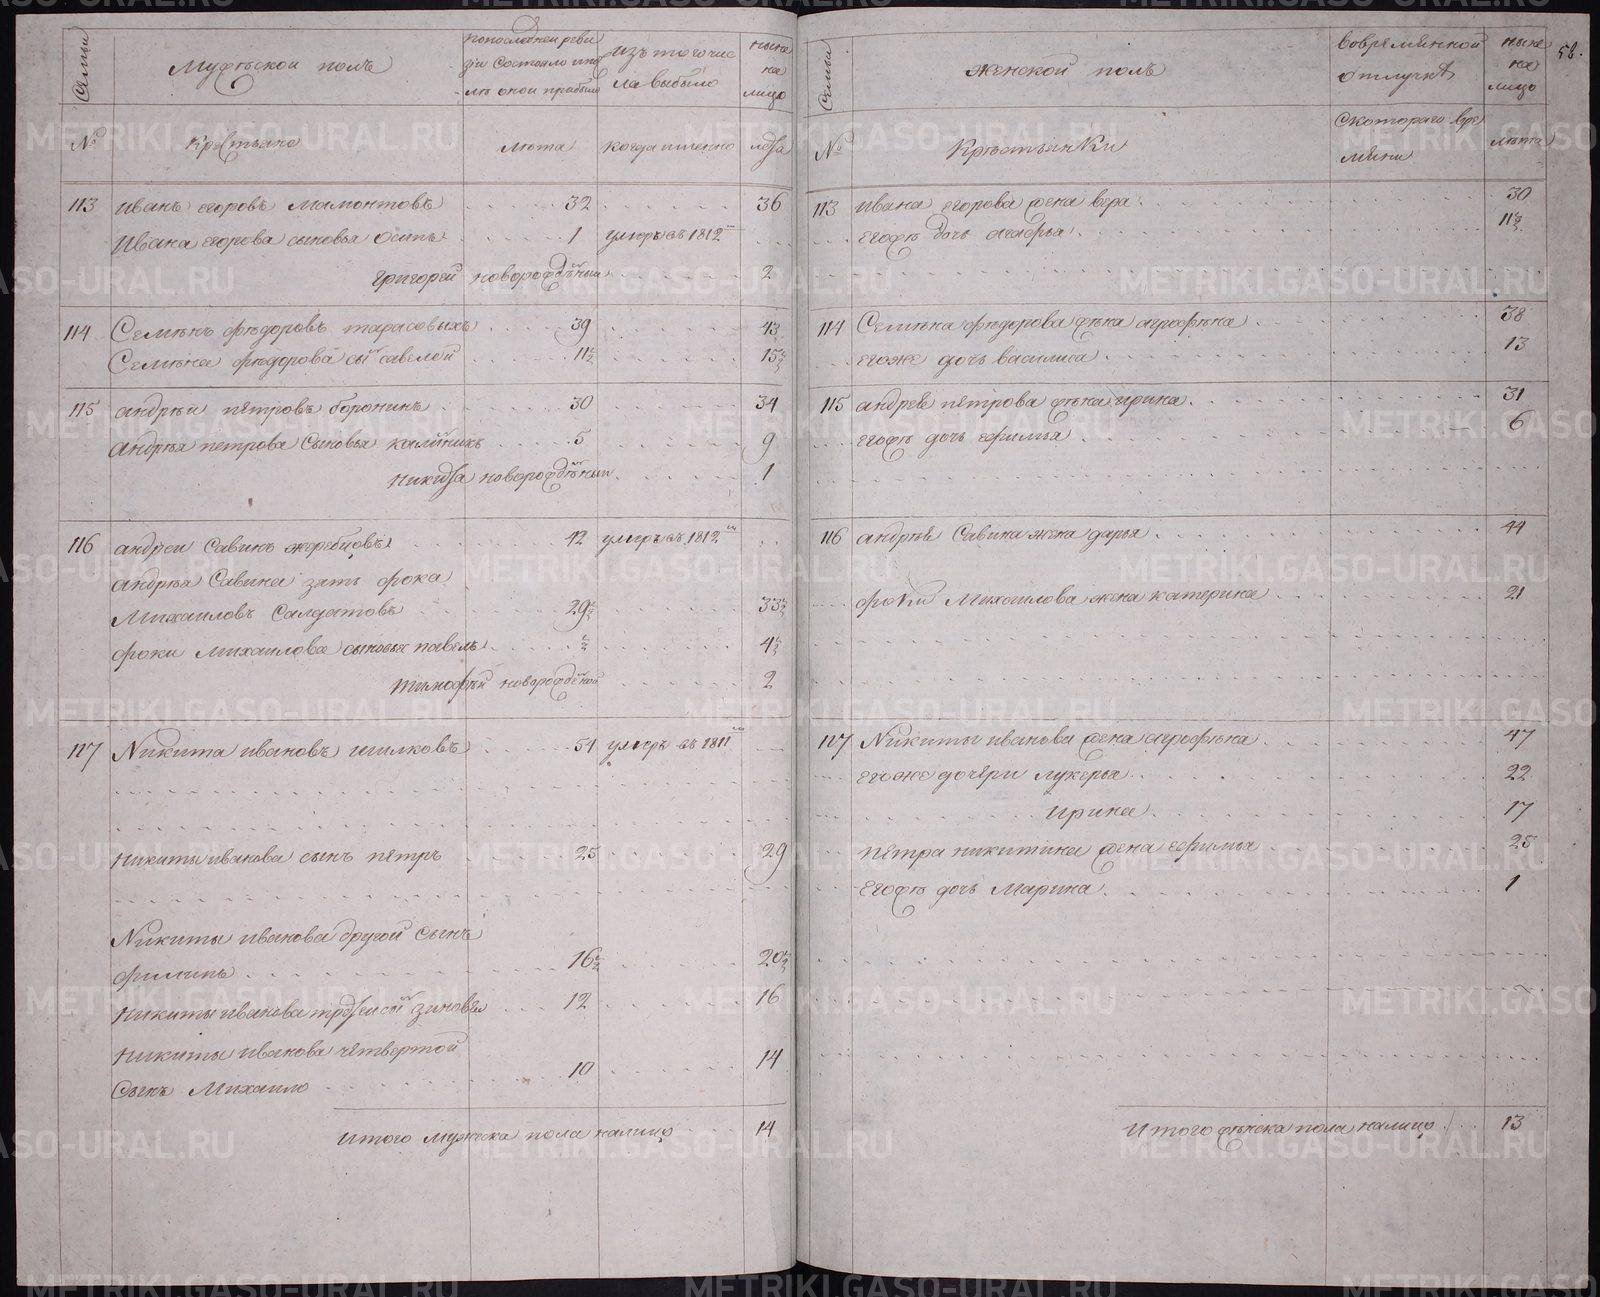 Семьи
Мужескои полъ
попоследнеи реви
зіи состояло ипос
лѣ онои прибыло
изъ того чис
ла выбыло
ныне
на
лицо
№
Крестьяне
лѣта
когда имянно
лѣта
113 иванъ егоровъ мамонтовъ 32 36
Ивана егорова сыновья осипъ 1 умеръ въ 1812м
григореи новорожденныи 2
114 Семенъ федоровъ тарасовыхъ 39 43
Семена федорова сынъ савелеи 11½ 15½
115 андреи петровъ боронинъ 30 34
андрея петрова сыновья калиникъ 5 9
никита новорожденныи 1
116 андреи Савинъ жеребцовъ 42 умеръ въ 1812м
андрея Савина зять фока
Михаиловъ Салдатовъ 29½ 33½
фоки михаилова сыновья павелъ ½ 4½
тимофеи новорожденои 2
117 Никита ивановъ шилковъ 54 умеръ въ 1811м
никиты иванова сынъ петръ 25 29
Никиты иванова другои сынъ
филипъ 16½ 20½
никиты иванова третеи сынъ зиновеи 12 16
никиты иванова четвертои
сынъ Михаило 10 14
итого мужеска пола налицо 14
58.
Семьи
женскои полъ
вовремяннои
отлучке
ныне
на
лицо
№
Крестьянки
скотораго вре
мяни
лѣта
113 ивана егорова жена вера 30
егожъ дочь агафья 11½
114 Семена федорова жена агрофена 38
егоже дочь василиса 13
115 андрея петрова жена ирина 31
егожъ дочь ефимья 6
116 андрея Савина жена дарья 44
фоки Михаилова жена катерина 21
117 Никиты иванова жена агрофена 47
егоже дочери лукерья 22
ирина 17
петра никитина жена ефимья 25
егожъ дочь Марина 1
Итого женска пола налицо 13
METRIKI.GASO-URAL.RU